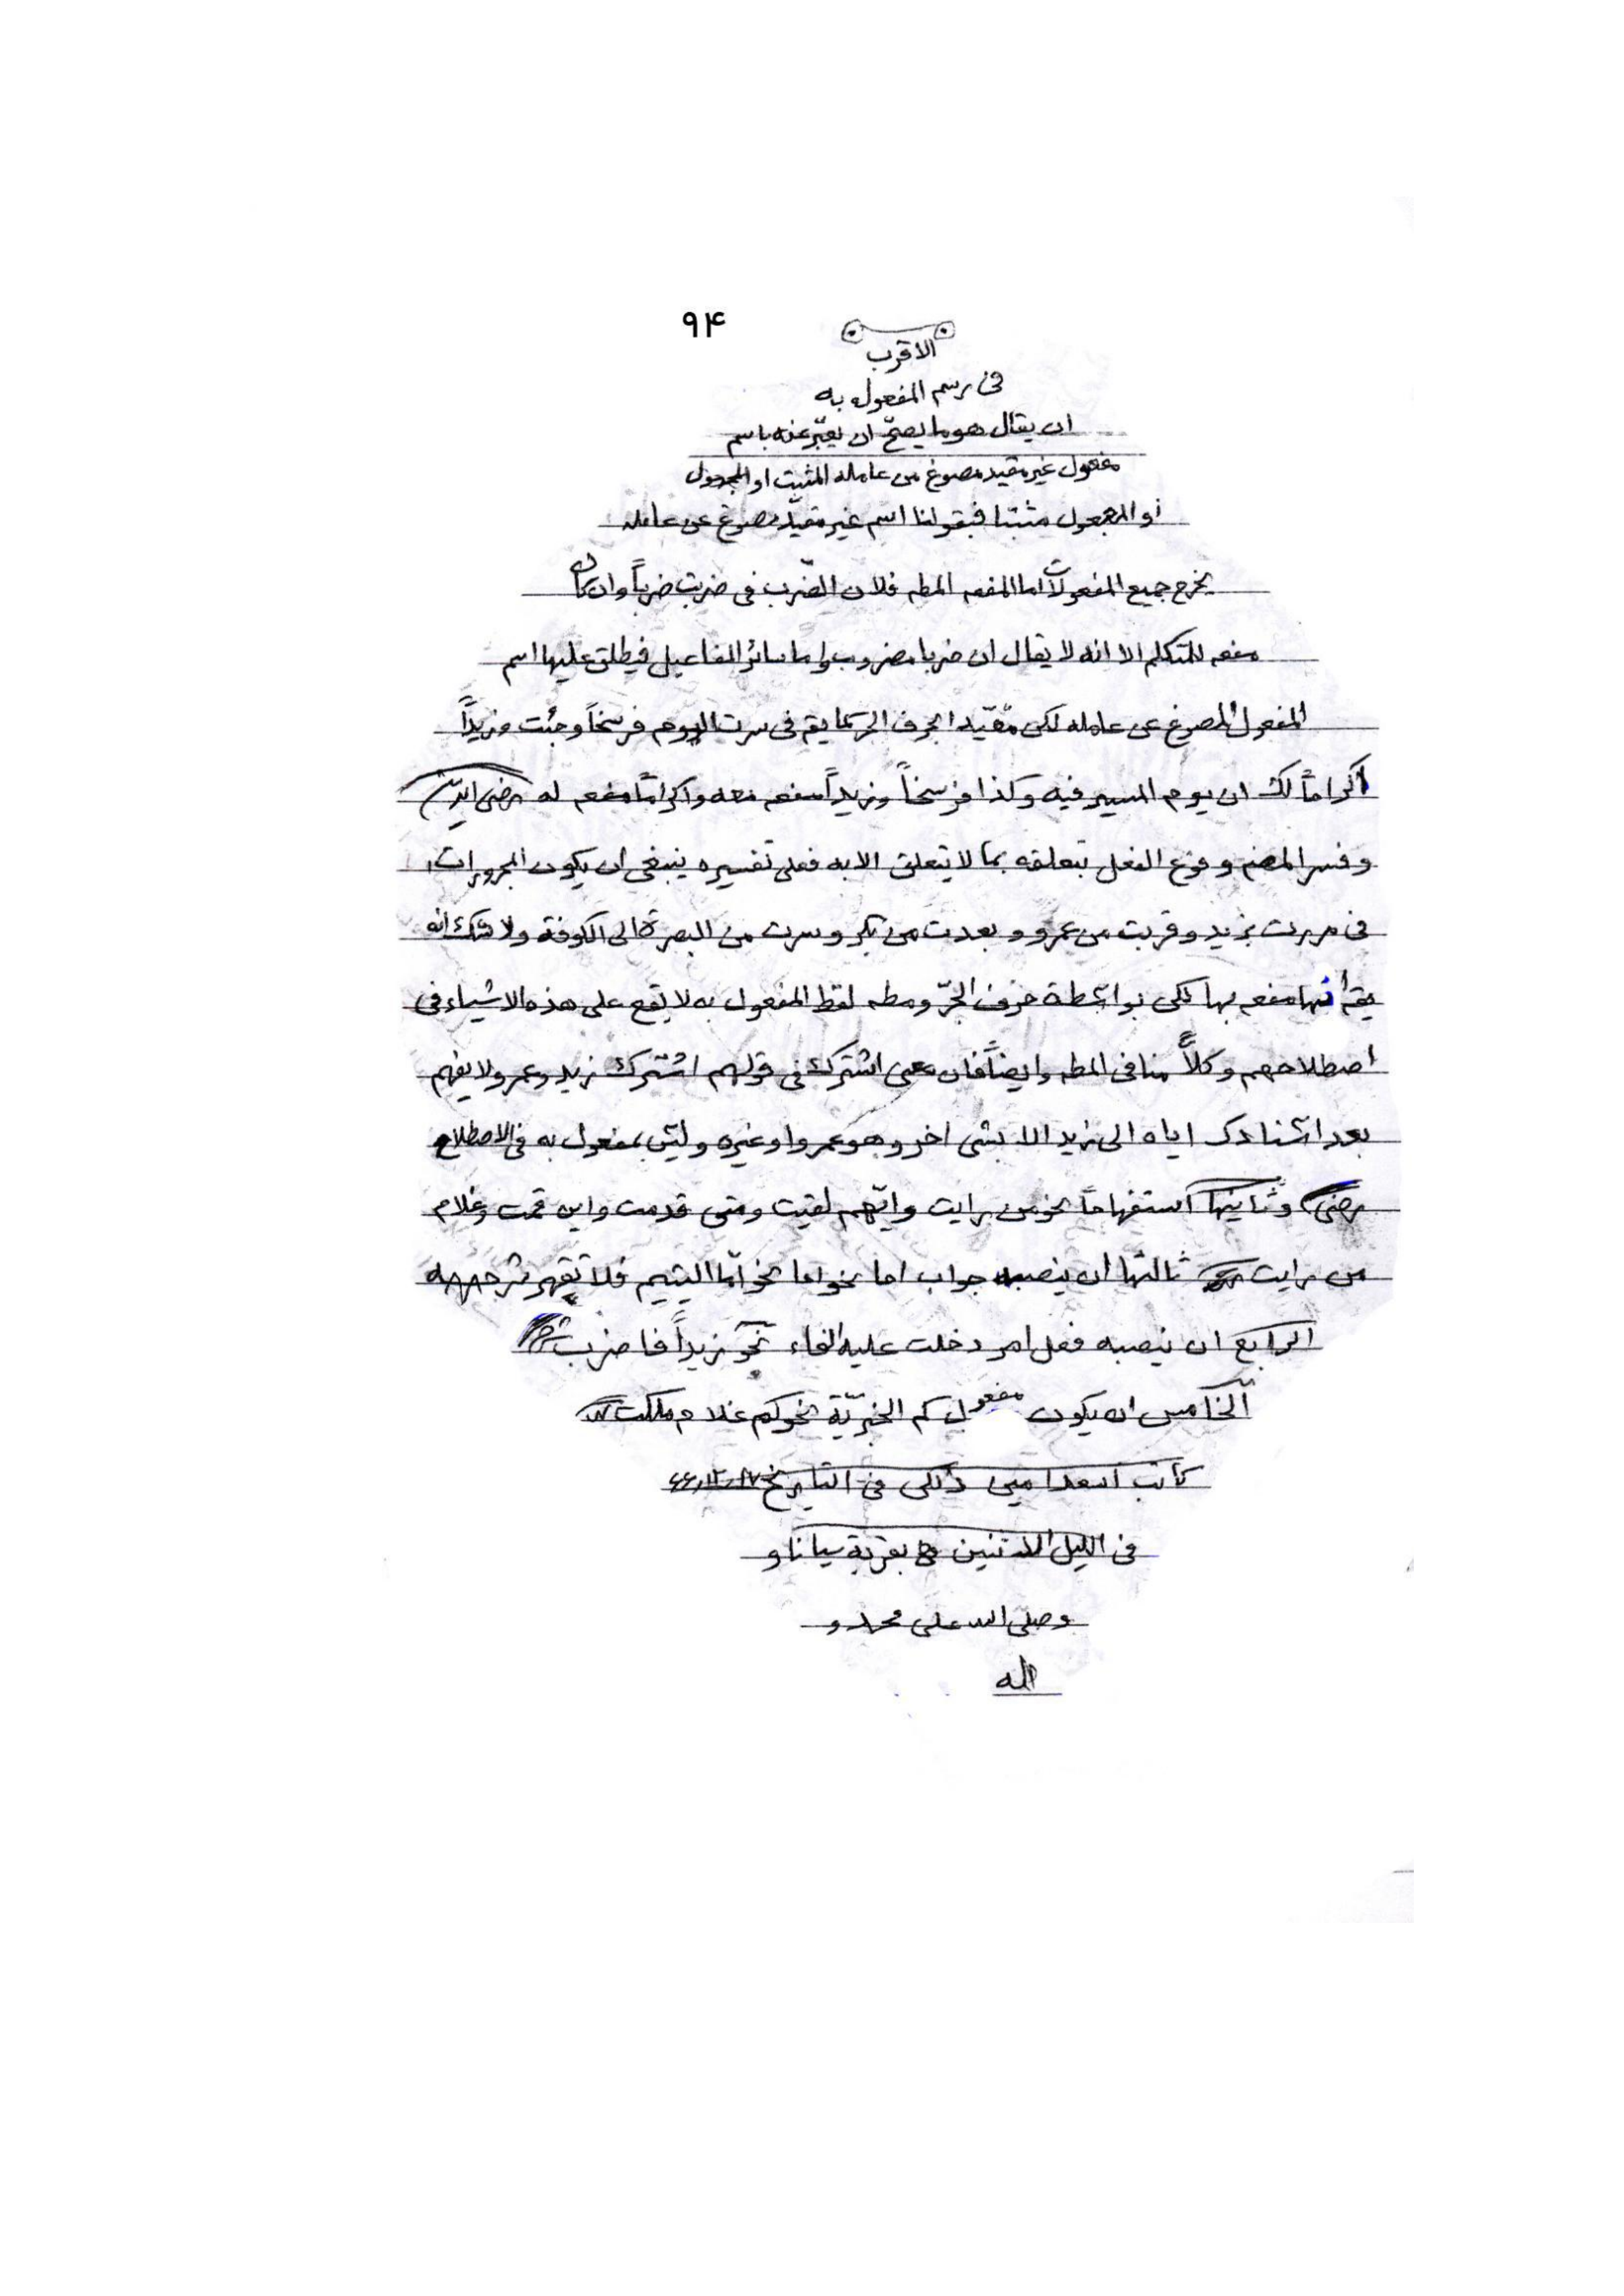 ۹۴
الاقرب
فی رسم المفعول به
ان یقال هو ما یصحّ ان یعبّر عنه باسم
مفعول غیر مقید مصوغ من عامله المثبت او المجعول
او المجعول مثبتا فبقولنا اسم غیر مقیّد مصوغ عن عامله
یخرج جمیع المفعولات اما المفعه المطه فلان الضّرب فی ضربت ضرباً وان کان
مفعه للمتکلم الا انه لا یقال ان ضربا مضروب واما سائر المفاعیل فیطلق علیها اسم
المفعول المصوغ عن عامله لکن مقیّد ا بحرف الجر کما یقه فی سرت الیوم فرسخاً وجئت وزیداً
اکراماً لک ان یوم المسیر فیه وکذا فرسخاً وزیداً مفعه معه واکراماً مفعه له رضی الدین
وفسر المصنه وقوع الفعل بتعلقه بما لا یتعلق الا به فعلی تفسیره ینبغی ان یکون المجرورات
فی مررت بزید وقربت من عمرو و بعدت من بکر وسرت من البصرة الی الکوفة ولا شک انه
یقه انها مفعه بها لکن بواسطة حرف الجرّ ومطه لفظ المفعول به لا یقع علی هذه الاشیاء فی
اصطلاحهم وکلاً منا فی المطه وایضاً فان معنی اشترک فی قولهم اشترک زید وعمرو لا یفهم
بعد اسنادک ایاه الی زید الا بشی اخر وهو عمرو او غیره ولیس بمفعول به فی الاصطلاح
رضی وثانیها استفهاماً نحو من رایت وایّهم لقیت ومتی قدمت واین قمت وغلام
من رایت ثالثها ان ینصبه جواب اما نحو اما نحو امّا الیتیم فلا تقهر ترجمه
الرابع ان ینصبه فعل امر دخلت علیه الفاء نحو زیداً فاضرب
الخامس ان یکون مفعول کم الخبریّة نحو کم غلام ملکت
کاتب اسعد امینی ذلکی فی التاریخ
فی اللیل الاثنین بقریة سیاناو
وصلّی الله علی محمد و
اله